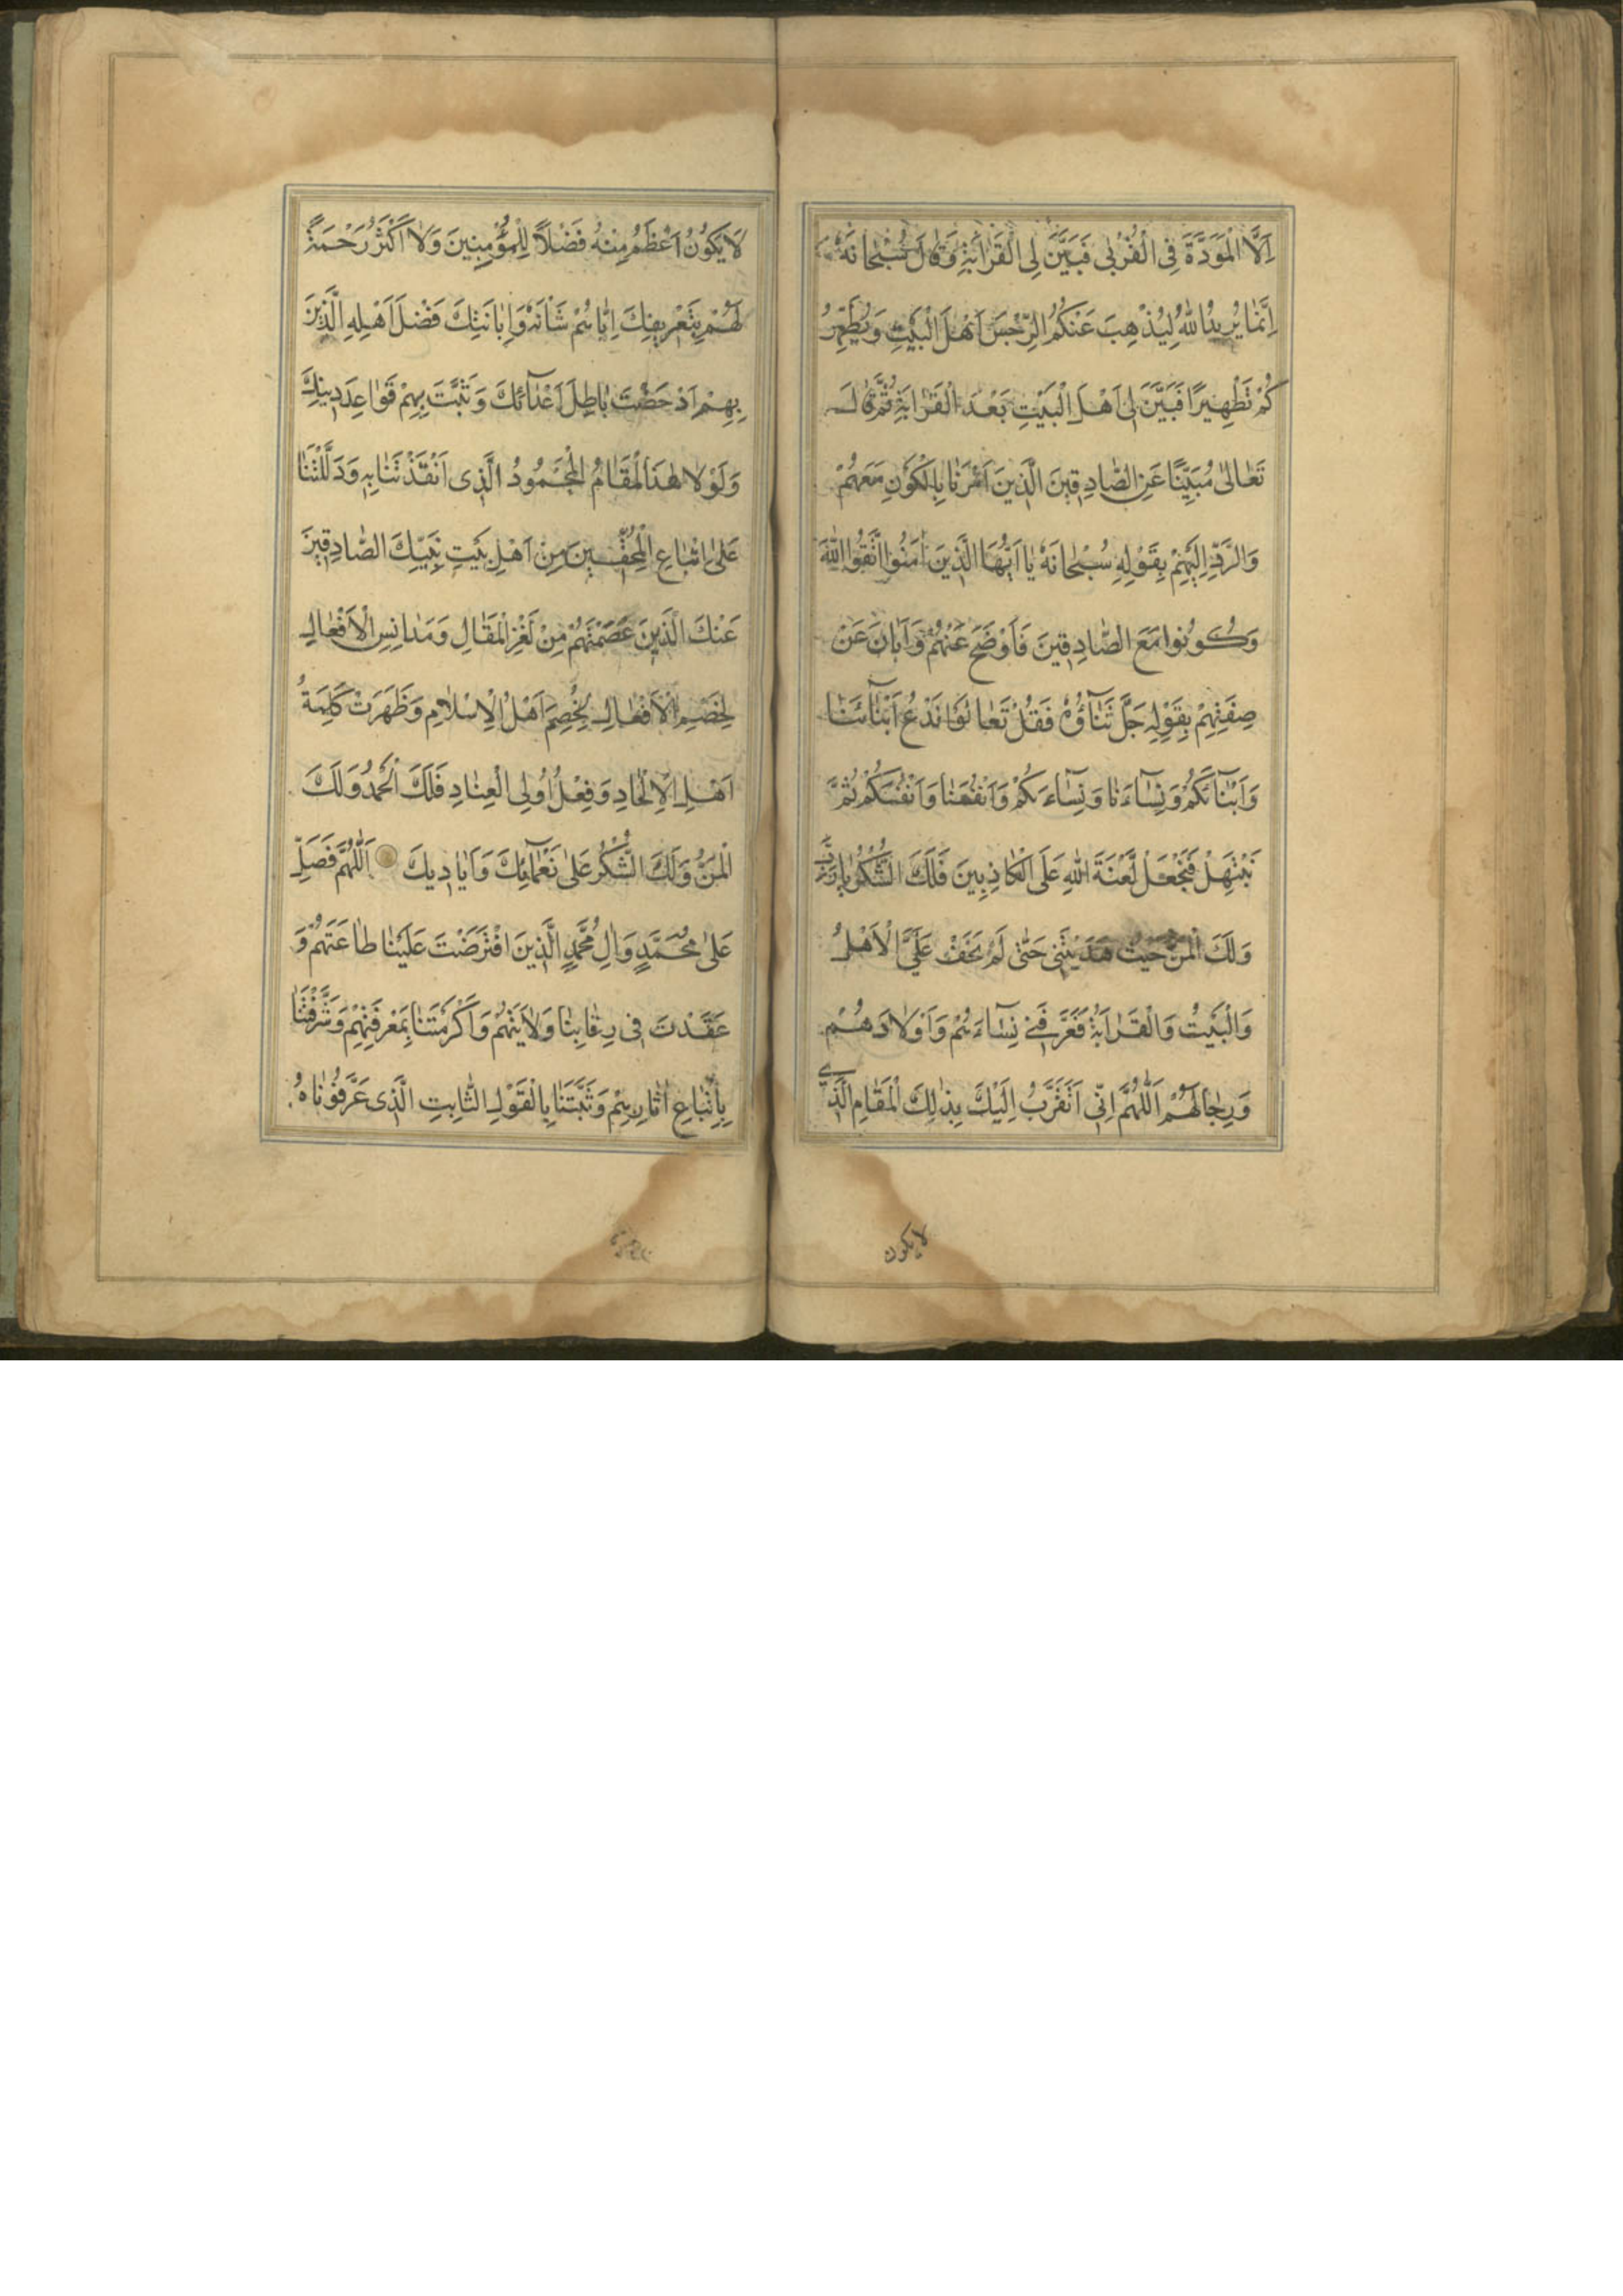 اِلَّا الْمَوَدَّةَ فِی الْقُرْبٰی فَبَیَّنَ لِیَ الْقَرٰابَةِ وَقٰالَ سُبْحٰانَهُ
اِنَّمٰا یُرِیدُ اللهُ لِیُذْهِبَ عَنْکُمُ الرِّجْسَ اَهْلَ الْبَیْتِ وَیُطَهِّرَ
کُمْ تَطْهِیرًا فَبَیَّنَ لِی اَهْلَ الْبَیْتِ بَعْدَ الْقَرٰابَةِ ثُمَّ قٰالَ
تَعٰالٰی مُبَیِّنًا عَنِ الصّٰادِقِینَ الَّذِینَ اَمَرَنٰا بِالْکَوْنِ مَعَهُمْ
وَالرَّدِّ اِلَیْهِمْ بِقَوْلِهِ سُبْحٰانَهُ یٰا اَیُّهَا الَّذِینَ اٰمَنُوا اتَّقُوا اللهَ
وَکُونُوا مَعَ الصّٰادِقِینَ فَاَوْضَحَ عَنْهُمْ وَاَبٰانَ عَنْ
صِفَتِهِمْ بِقَوْلِهِ جَلَّ ثَنٰآؤُهُ فَقُلْ تَعٰالَوْا نَدْعُ اَبْنٰآئَنٰا
وَاَبْنٰآئَکُمْ وَنِسٰآءَنٰا وَنِسٰآءَکُمْ وَاَنْفُسَنٰا وَاَنْفُسَکُمْ ثُمَّ
نَبْتَهِلْ فَنَجْعَلْ لَعْنَةَ اللهِ عَلَی الْکٰاذِبِینَ فَلَکَ الشُّکْرُ یٰا رَبِّ
وَلَکَ الْمَنُّ حَیْثُ هَدَیْتَنِی حَتّٰی لَمْ یَخْفَ عَلَیَّ الْاَهْلُ
وَالْبَیْتُ وَالْقَرٰابَةُ فَعَرَّفَنِی نِسٰآءَهُمْ وَاَوْلٰادَهُمْ
وَرِجٰالَهُمْ اَللّٰهُمَّ اِنِّی اَتَقَرَّبُ اِلَیْکَ بِذٰلِکَ الْمَقٰامِ الَّذِی
لایکون
لَا یَکُونُ اَعْظَمُ مِنْهُ فَضْلًا لِلْمُؤْمِنِینَ وَلٰا اَکْثَرُ رَحْمَةً
لَهُمْ بِتَعْرِیفِکَ اِیّٰاهُمْ شَاْنَهُ وَاِبٰانَتِکَ فَضْلَ اَهْلِهِ الَّذِینَ
بِهِمْ اَدْحَضْتَ بٰاطِلَ اَعْدٰآئِکَ وَثَبَّتَّ بِهِمْ قَوٰاعِدَ دِینِکَ
وَلَوْلٰا هٰذَا الْمَقٰامُ الْمَحْمُودُ الَّذِی اَنْقَذْتَنٰا بِهِ وَدَلَلْتَنٰا
عَلٰی اِتْبٰاعِ الْمُحِقِّینَ مِنْ اَهْلِ بَیْتِ نَبِیِّکَ الصّٰادِقِینَ
عَنْکَ الَّذِینَ عَصَمْتَهُمْ مِنْ لَغْزِ الْمَقٰالِ وَمَدٰانِسِ الْاَفْعٰالِ
لَخُصِمَ اَهْلُ الْاِسْلٰامِ وَظَهَرَتْ کَلِمَةُ
اَهْلِ الْاِلْحٰادِ وَفِعْلُ اُولِی الْعِنٰادِ فَلَکَ الْحَمْدُ وَلَکَ
الْمَنُّ وَلَکَ الشُّکْرُ عَلٰی نَعْمٰآئِکَ وَاَیٰادِیکَ اَللّٰهُمَّ فَصَلِّ
عَلٰی مُحَمَّدٍ وَاٰلِ مُحَمَّدٍ الَّذِینَ افْتَرَضْتَ عَلَیْنٰا طٰاعَتَهُمْ وَ
عَقَدْتَ فِی رِقٰابِنٰا وَلٰایَتَهُمْ وَاَکْرَمْتَنٰا بِمَعْرِفَتِهِمْ وَشَرَّفْتَنٰا
بِاِتِّبٰاعِ اٰثٰارِهِمْ وَثَبَّتَنٰا بِالْقَوْلِ الثّٰابِتِ الَّذِی عَرَّفُونٰاهُ